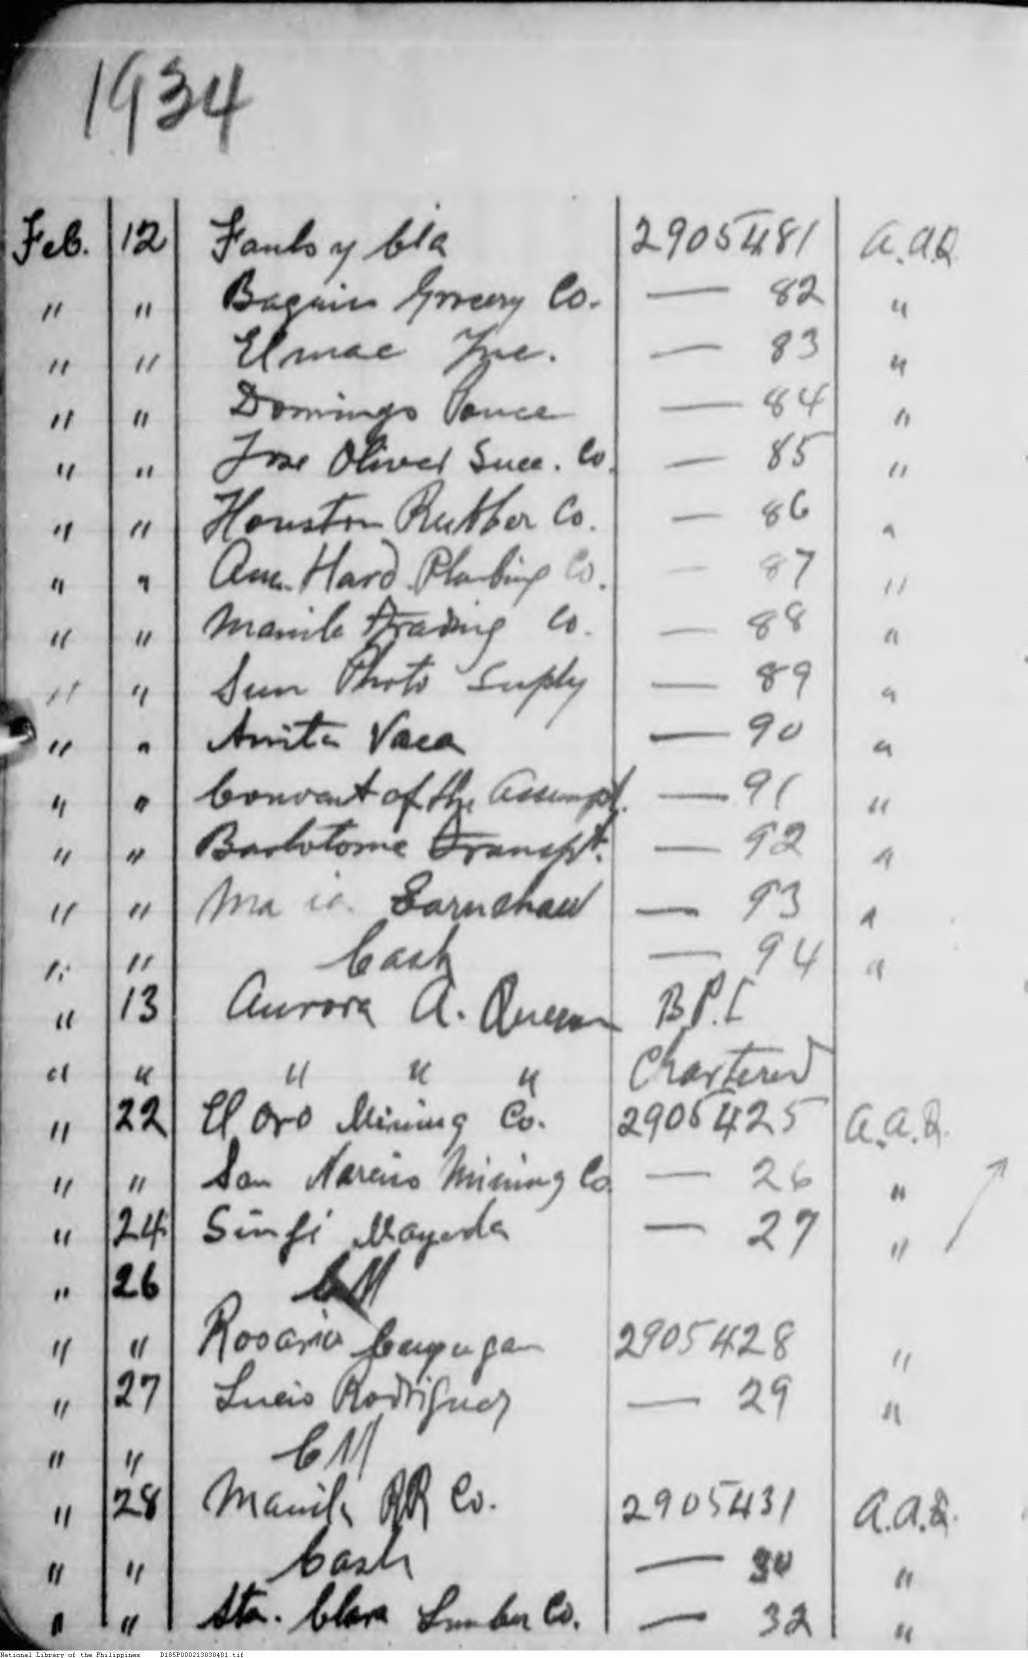 1934
Feb. 12 y Cia 2905481 A.A.Q.
" " Baguio Grocery Co. — 82 "
" " Elmac Inc. — 83 "
" " Domingo Ponce — 84 "
" " Jose Oliver Succ. Co. — 85 "
" " Houston Rubber Co. — 86 "
" " Am. Hard. Plumbing Co. — 87 "
" " Manila Trading Co. — 88 "
" " Sun Photo Suply — 89 "
" " Anita Vaca — 90 "
" " Convent of the Assumpt. — 91 "
" " Bartolome Transpt. — 92 "
" " Earnshaw — 93 "
" " Cash — 94 "
" 13 Aurora A. Quezon B.P.I.
" " " " " Chartered
" 22 El Oro Mining Co. 2905425 A.A.Q.
" " San Narciso Mining Co. — 26 "
" 24 Sinfi Mayeda — 27 "
" 26
" " Rosario Cuyugan 2905428 "
" 27 Lucio Rodriguez — 29 "
" "
" 28 Manila RR Co. 2905431 A.A.Q.
" " Cash — 30 "
" " Sta. Clara Lumber Co. — 32 "
National Library of the Philippines D185P000213030401.tif